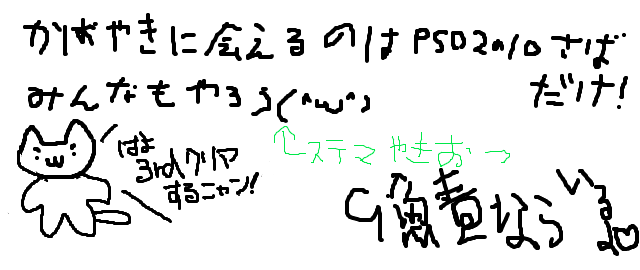 かずやきに会えるのはPSO2の10さば
だけ!
みんなもやろう(^ω^)
↑ステマ やきお→
はよ
3rdクリア
するニャン!
なら いるよ♡